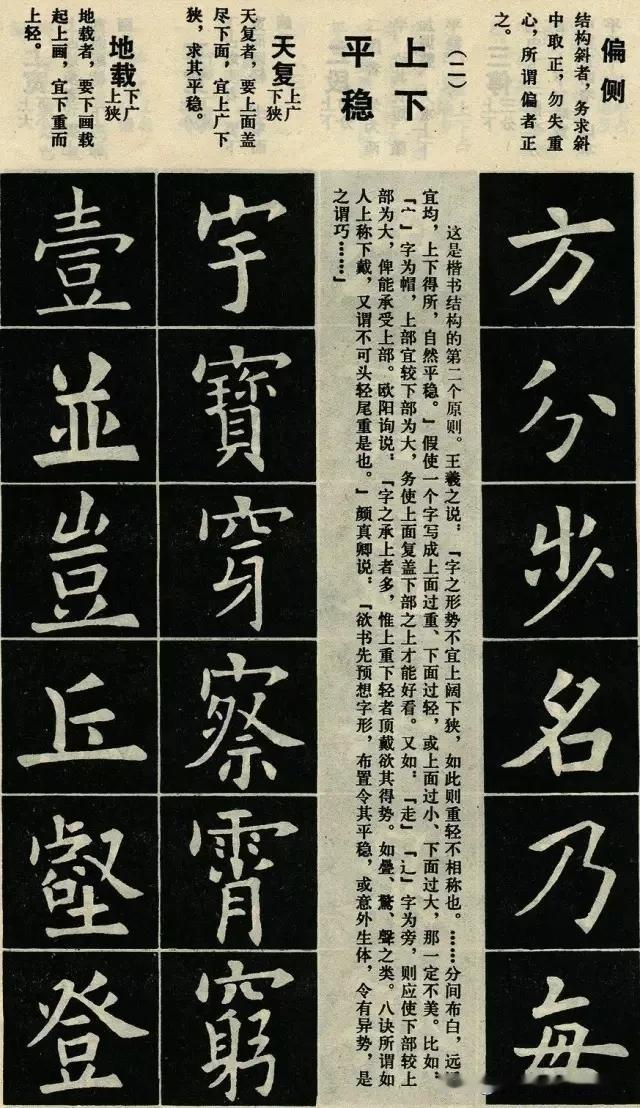 偏侧
结构斜者，务求斜
中取正，勿失重
心，所谓偏者正
之。
方
分
步
名
乃
每
（二）
上下
平稳
这是楷书结构的第二个原则。王羲之说：『字之形势不宜上阔下狭，如此则重轻不相称也。……分间布白，远
宜均，上下得所，自然平稳。』假使一个字写成上面过重、下面过轻，或上面过小、下面过大，那一定不美。比如，
『宀』字为帽，上部宜较下部为大，务使上面复盖下部之上才能好看。又如：『走』『辶』字为旁，则应使下部较上
部为大，俾能承受上部。欧阳询说：『字之承上者多，惟上重下轻者顶戴欲其得势。如疊、驚、聲之类。八诀所谓如
人上称下戴，又谓不可头轻尾重是也。』颜真卿说：『欲书先预想字形，布置令其平稳，或意外生体，令有异势，是
之谓巧……』
天复 上广
下狭
天复者，要上面盖
尽下面，宜上广下
狭，求其平稳。
宇
寶
穿
察
霄
窮
地载 下广
上狭
地载者，要下画载
起上画，宜下重而
上轻。
壹
並
豈
丘
壑
登